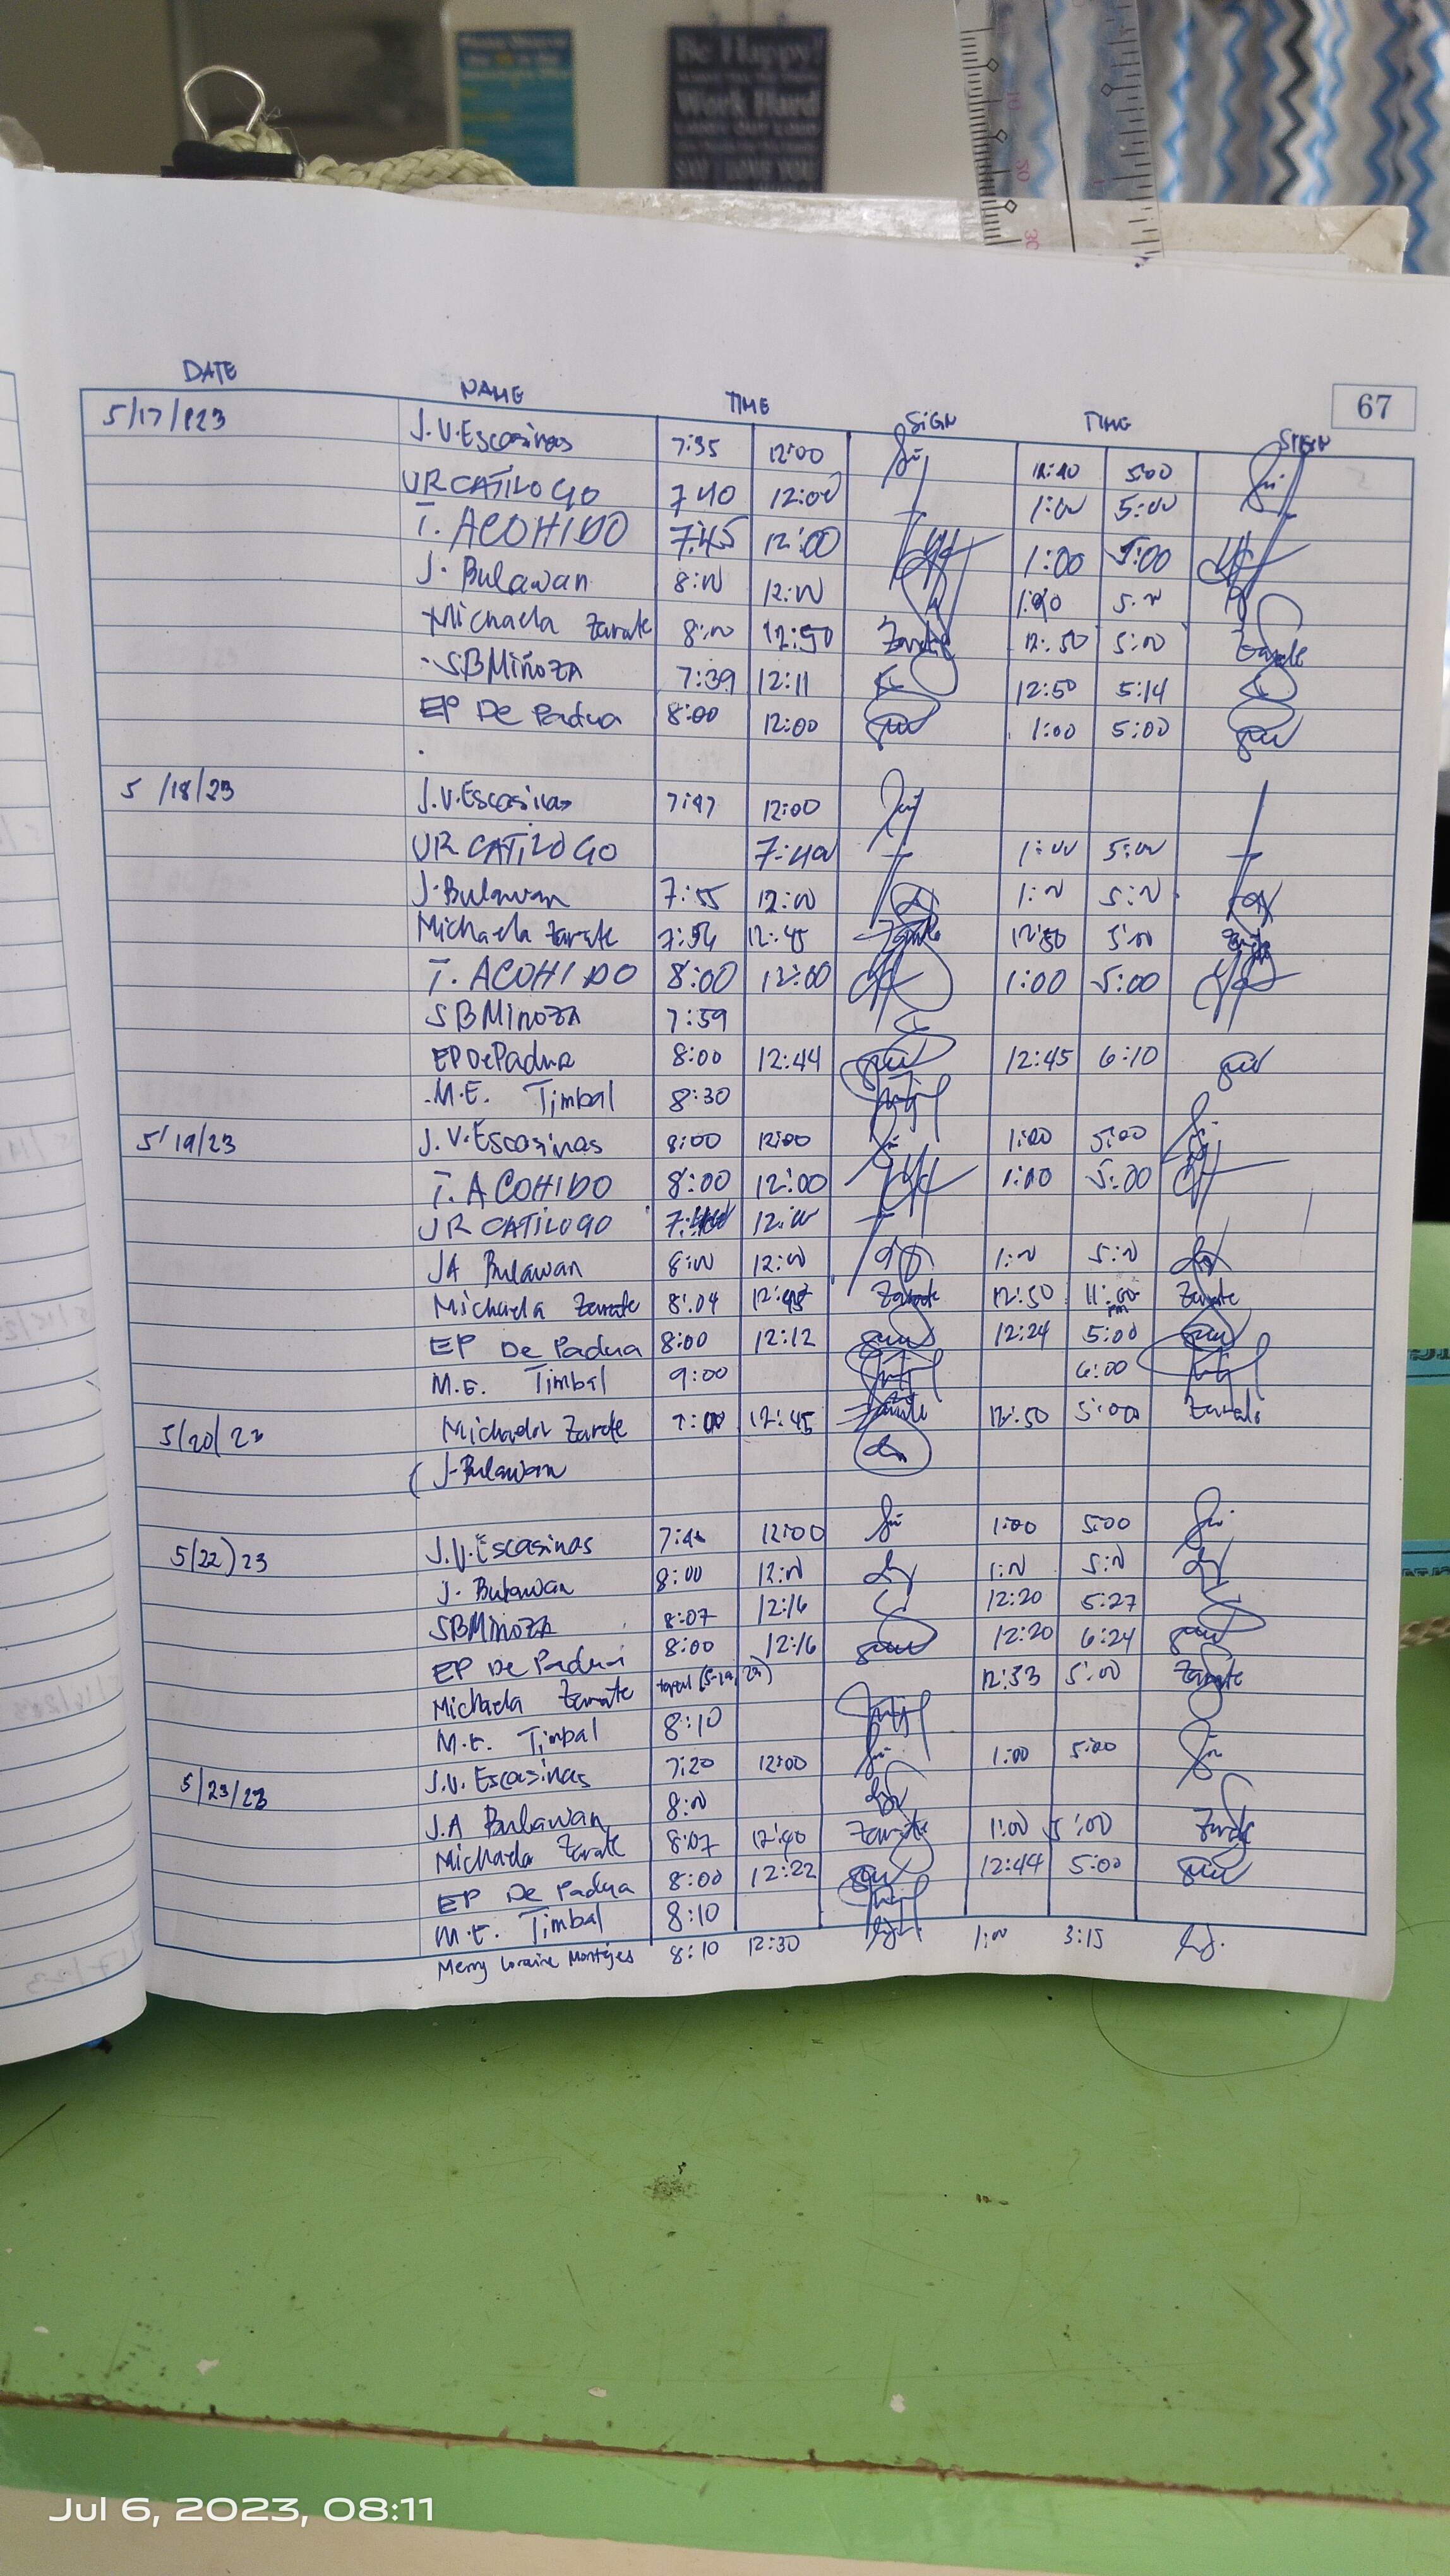 Be Happy!
Work Hard
SAY I LOVE YOU
67
DATE NAME TIME SIGN TIME SIGN
5/17/23 J.V.Escasinas 7:35 12:00 12:40 5:00
UR CATILOGO 7:40 12:00 1:00 5:00
T. ACOHIDO 7:45 12:00 1:00 5:00
J. Bulawan 8:00 12:00 1:00 5:00
Michaela Zarate 8:00 12:50 Zarate 12:50 5:00 Zarate
SBMiñoza 7:39 12:11 12:50 5:14
EP De Padua 8:00 12:00 1:00 5:00
5/18/23 J.V.Escasinas 7:47 12:00
UR CATILOGO 7:40 1:00 5:00
J. Bulawan 7:55 12:00 1:00 5:00
Michaela Zarate 7:56 12:45 Zarate 12:50 5:00
T. ACOHIDO 8:00 12:00 1:00 5:00
SBMinoza 7:59
EP DePadua 8:00 12:44 12:45 6:10
M.E. Timbal 8:30
5/19/23 J.V.Escasinas 8:00 12:00 1:00 5:00
T. ACOHIDO 8:00 12:00 1:00 5:00
UR CATILOGO 12:00
JA Bulawan 8:00 12:00 1:00 5:00
Michaela Zarate 8:04 12:45 Zarate 12:50 11:00 pm Zarate
EP De Padua 8:00 12:12 12:24 5:00
M.E. Timbal 9:00 6:00
5/20/23 Michaela Zarate 12:45 Zarate 12:50 5:00 Zarate
J. Bulawan
5/22/23 J.V.Escasinas 12:00 1:00 5:00
J. Bulawan 8:00 12:00 1:00 5:00
SBMinoza 8:07 12:16 12:20 5:27
EP De Padua 8:00 12:16 12:20 6:24
Michaela Zarate 12:33 5:00 Zarate
M.E. Timbal 8:10
5/23/23 J.V. Escasinas 7:20 12:00 1:00 5:00
J.A Bulawan 8:00
Michaela Zarate 8:07 12:40 Zarate 1:00 5:00 Zarate
EP De Padua 8:00 12:22 12:44 5:00
M.E. Timbal 8:10
Merry Loraine Montejes 8:10 12:30 1:00 3:15
Jul 6, 2023, 08:11